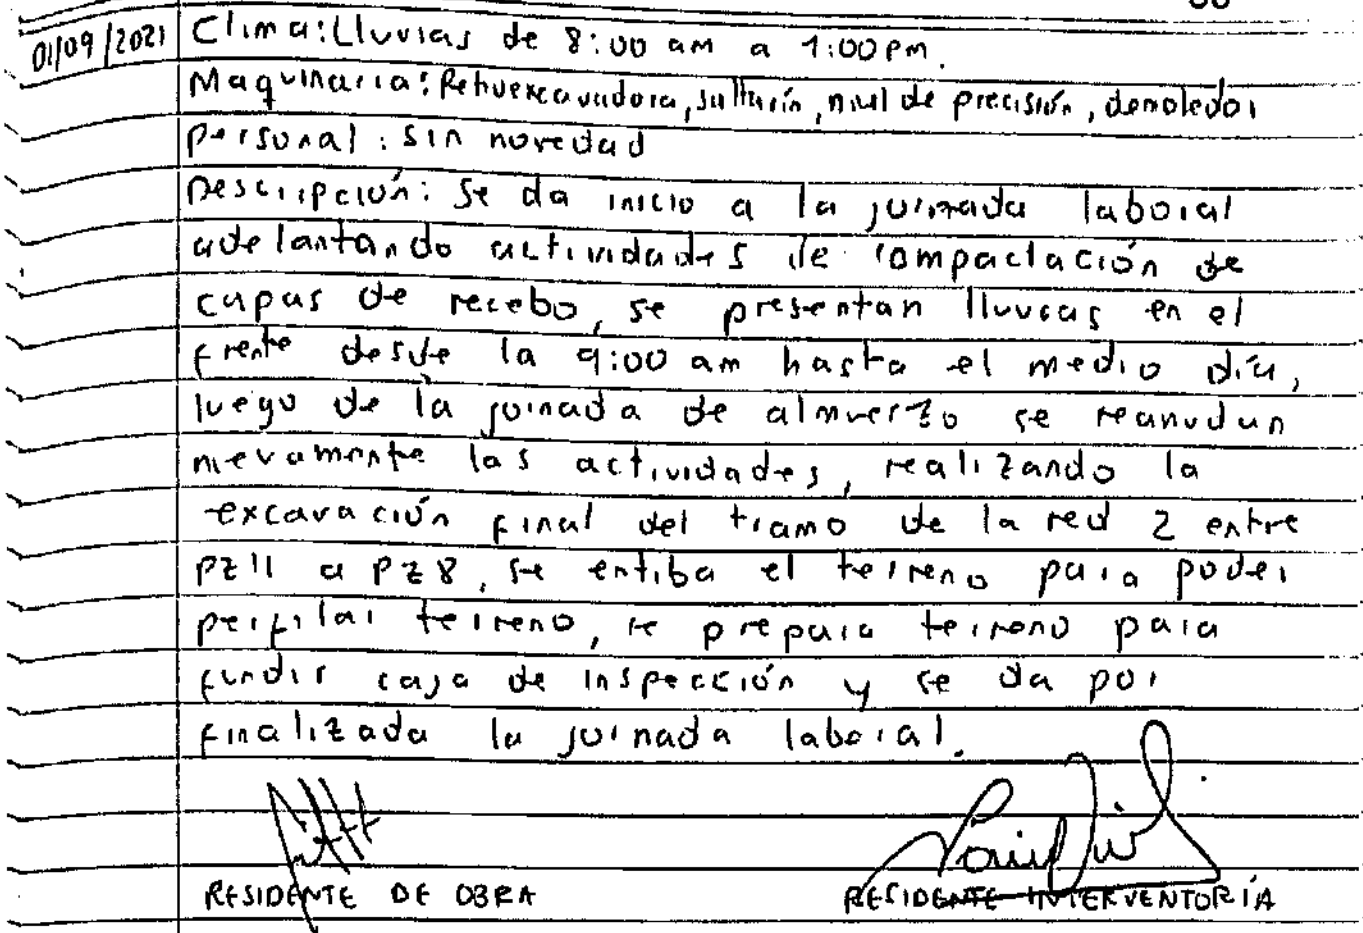 01/09/2021 Clima: Lluvias de 8:00 am a 1:00 pm.
Maquinaria: Retroexcavadora, saltarín, nivel de precisión, demoledor
personal: sin novedad
Descripción: Se da inicio a la jornada laboral
adelantando actividades de compactación de
capas de recebo, se presentan lluvias en el
frente desde la 9:00 am hasta el medio día,
luego de la jornada de almuerzo se reanudan
nuevamente las actividades, realizando la
excavación final del tramo de la red 2 entre
PZ11 a PZ8, se entiba el terreno para poder
perfilar terreno, se prepara terreno para
fundir caja de inspección y se da por
finalizada la jornada laboral.
RESIDENTE DE OBRA RESIDENTE INTERVENTORÍA